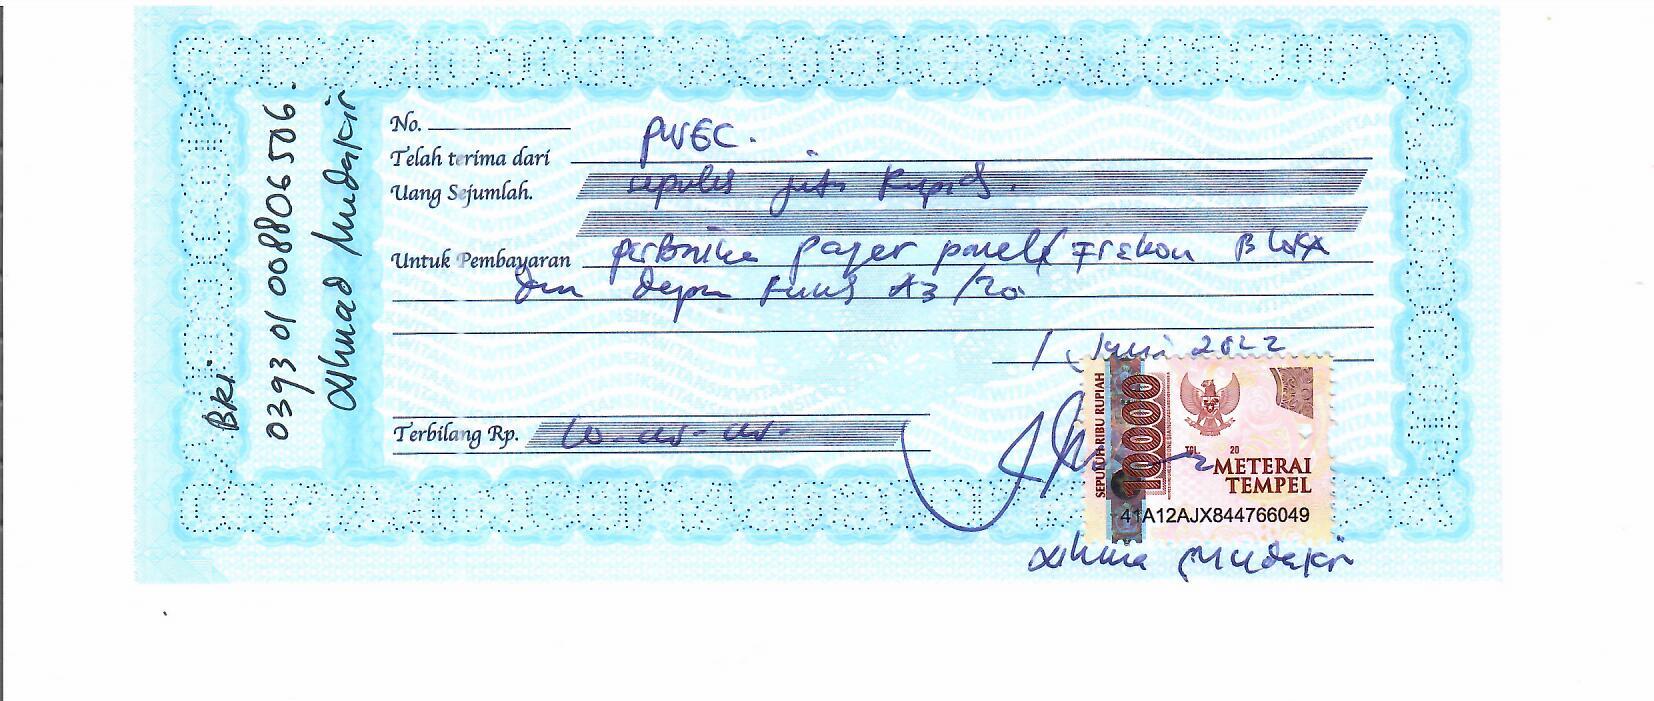 BRI.
0393 01 008806506.
Akhmad Mudakir
No.
Telah terima dari PWEC.
Uang Sejumlah. sepuluh juta Rupiah.
Untuk Pembayaran perbaika pager panel/ Blok A
dan depan A3/20
1 Juni 2022
Terbilang Rp. 10.000.000.-
SEPULUH RIBU RUPIAH
10000
TGL. 20
METERAI
TEMPEL
41A12AJX844766049
Akhma Mudakir